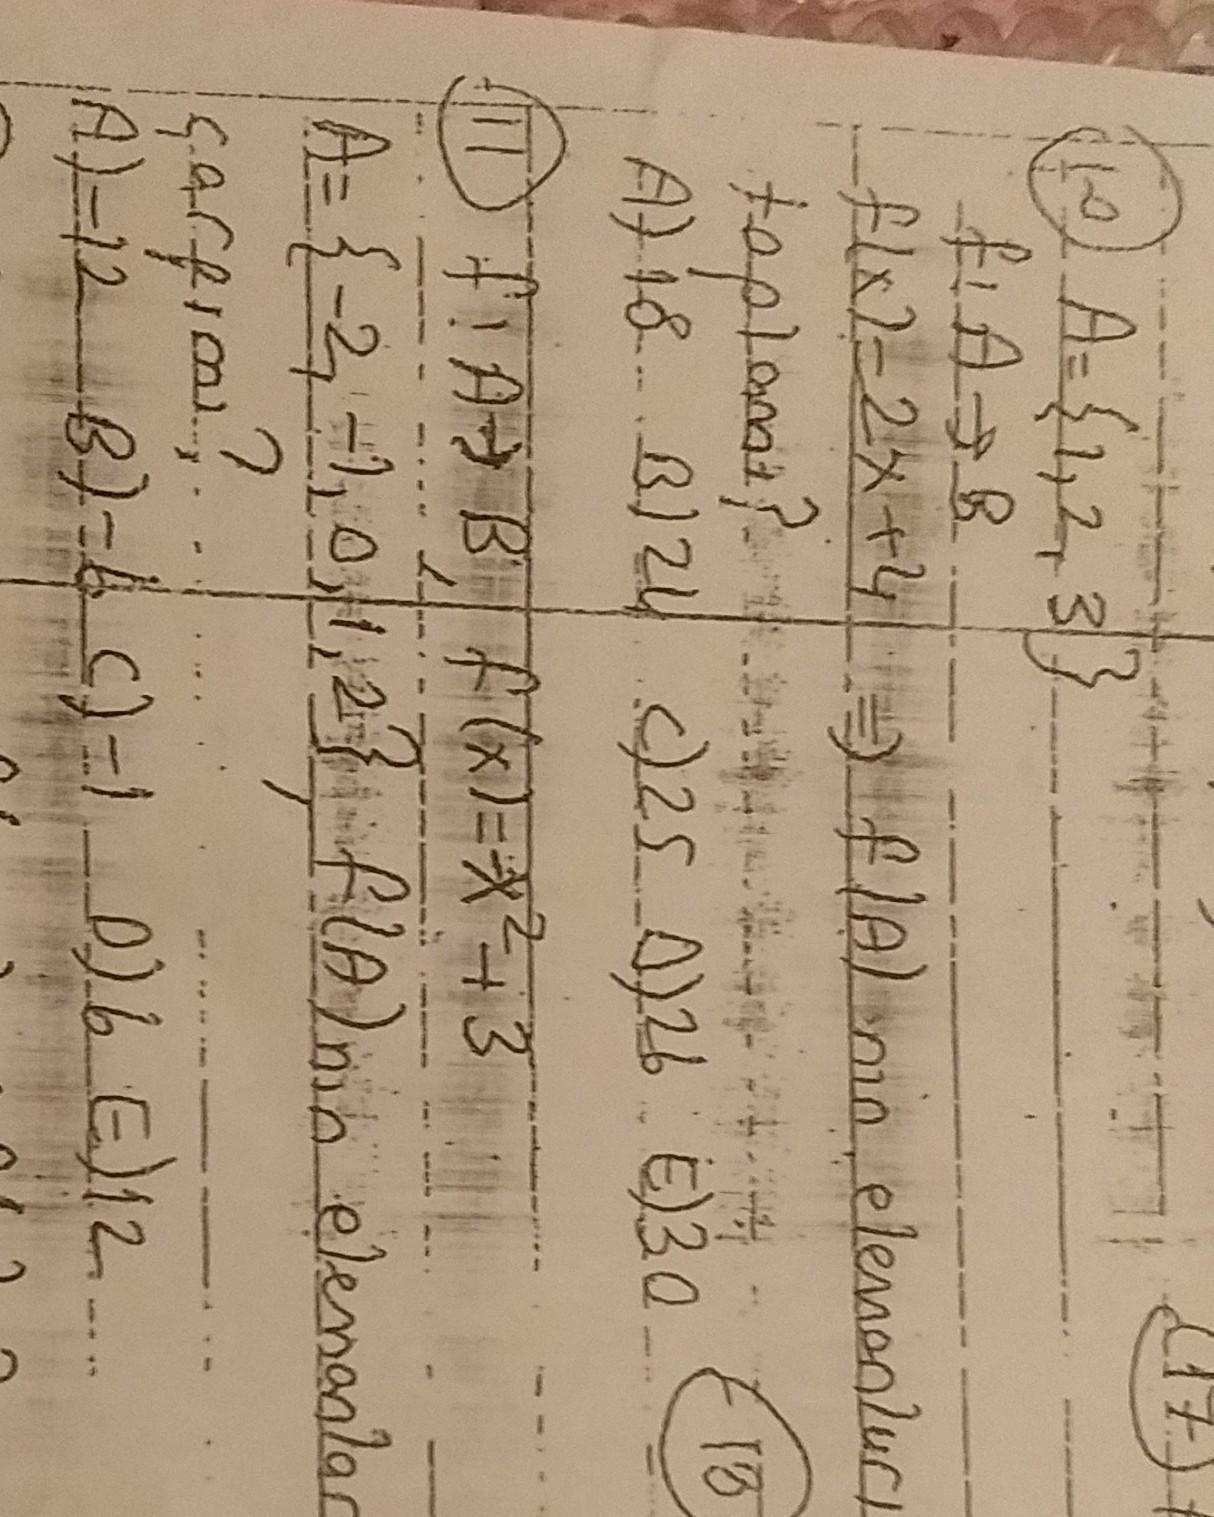 10 A={1,2,3}
f: A→B
f(x)=2x+4 ⇒ f(A) nın elemanları
toplamı?
A)18 B)24 C)25 D)26 E)30
11 f: A→B, f(x)=-x²+3
A={-2,-1,0,1,2}, f(A)nın elemanlar
çarpımı?
A)-12 B)-6 C)-1 D)6 E)12
17
18